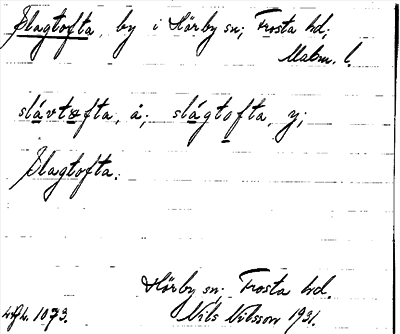 Slagtofta, by i Hörby sn; Frosta hd;
Malm. l.
slávtofta, å; slágtofta, y;
Slagtofta.
Hörby sn; Frosta hd.
1073. Nils Nilsson 1931.